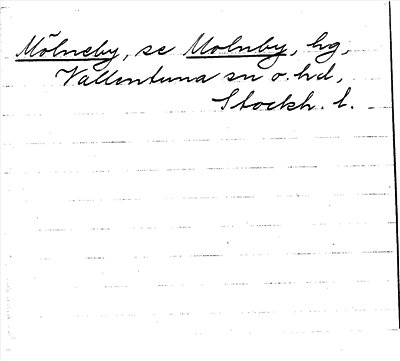 Mölneby, se Molnby, hg,
Vallentuna sn o. hd,
Stockh. l.